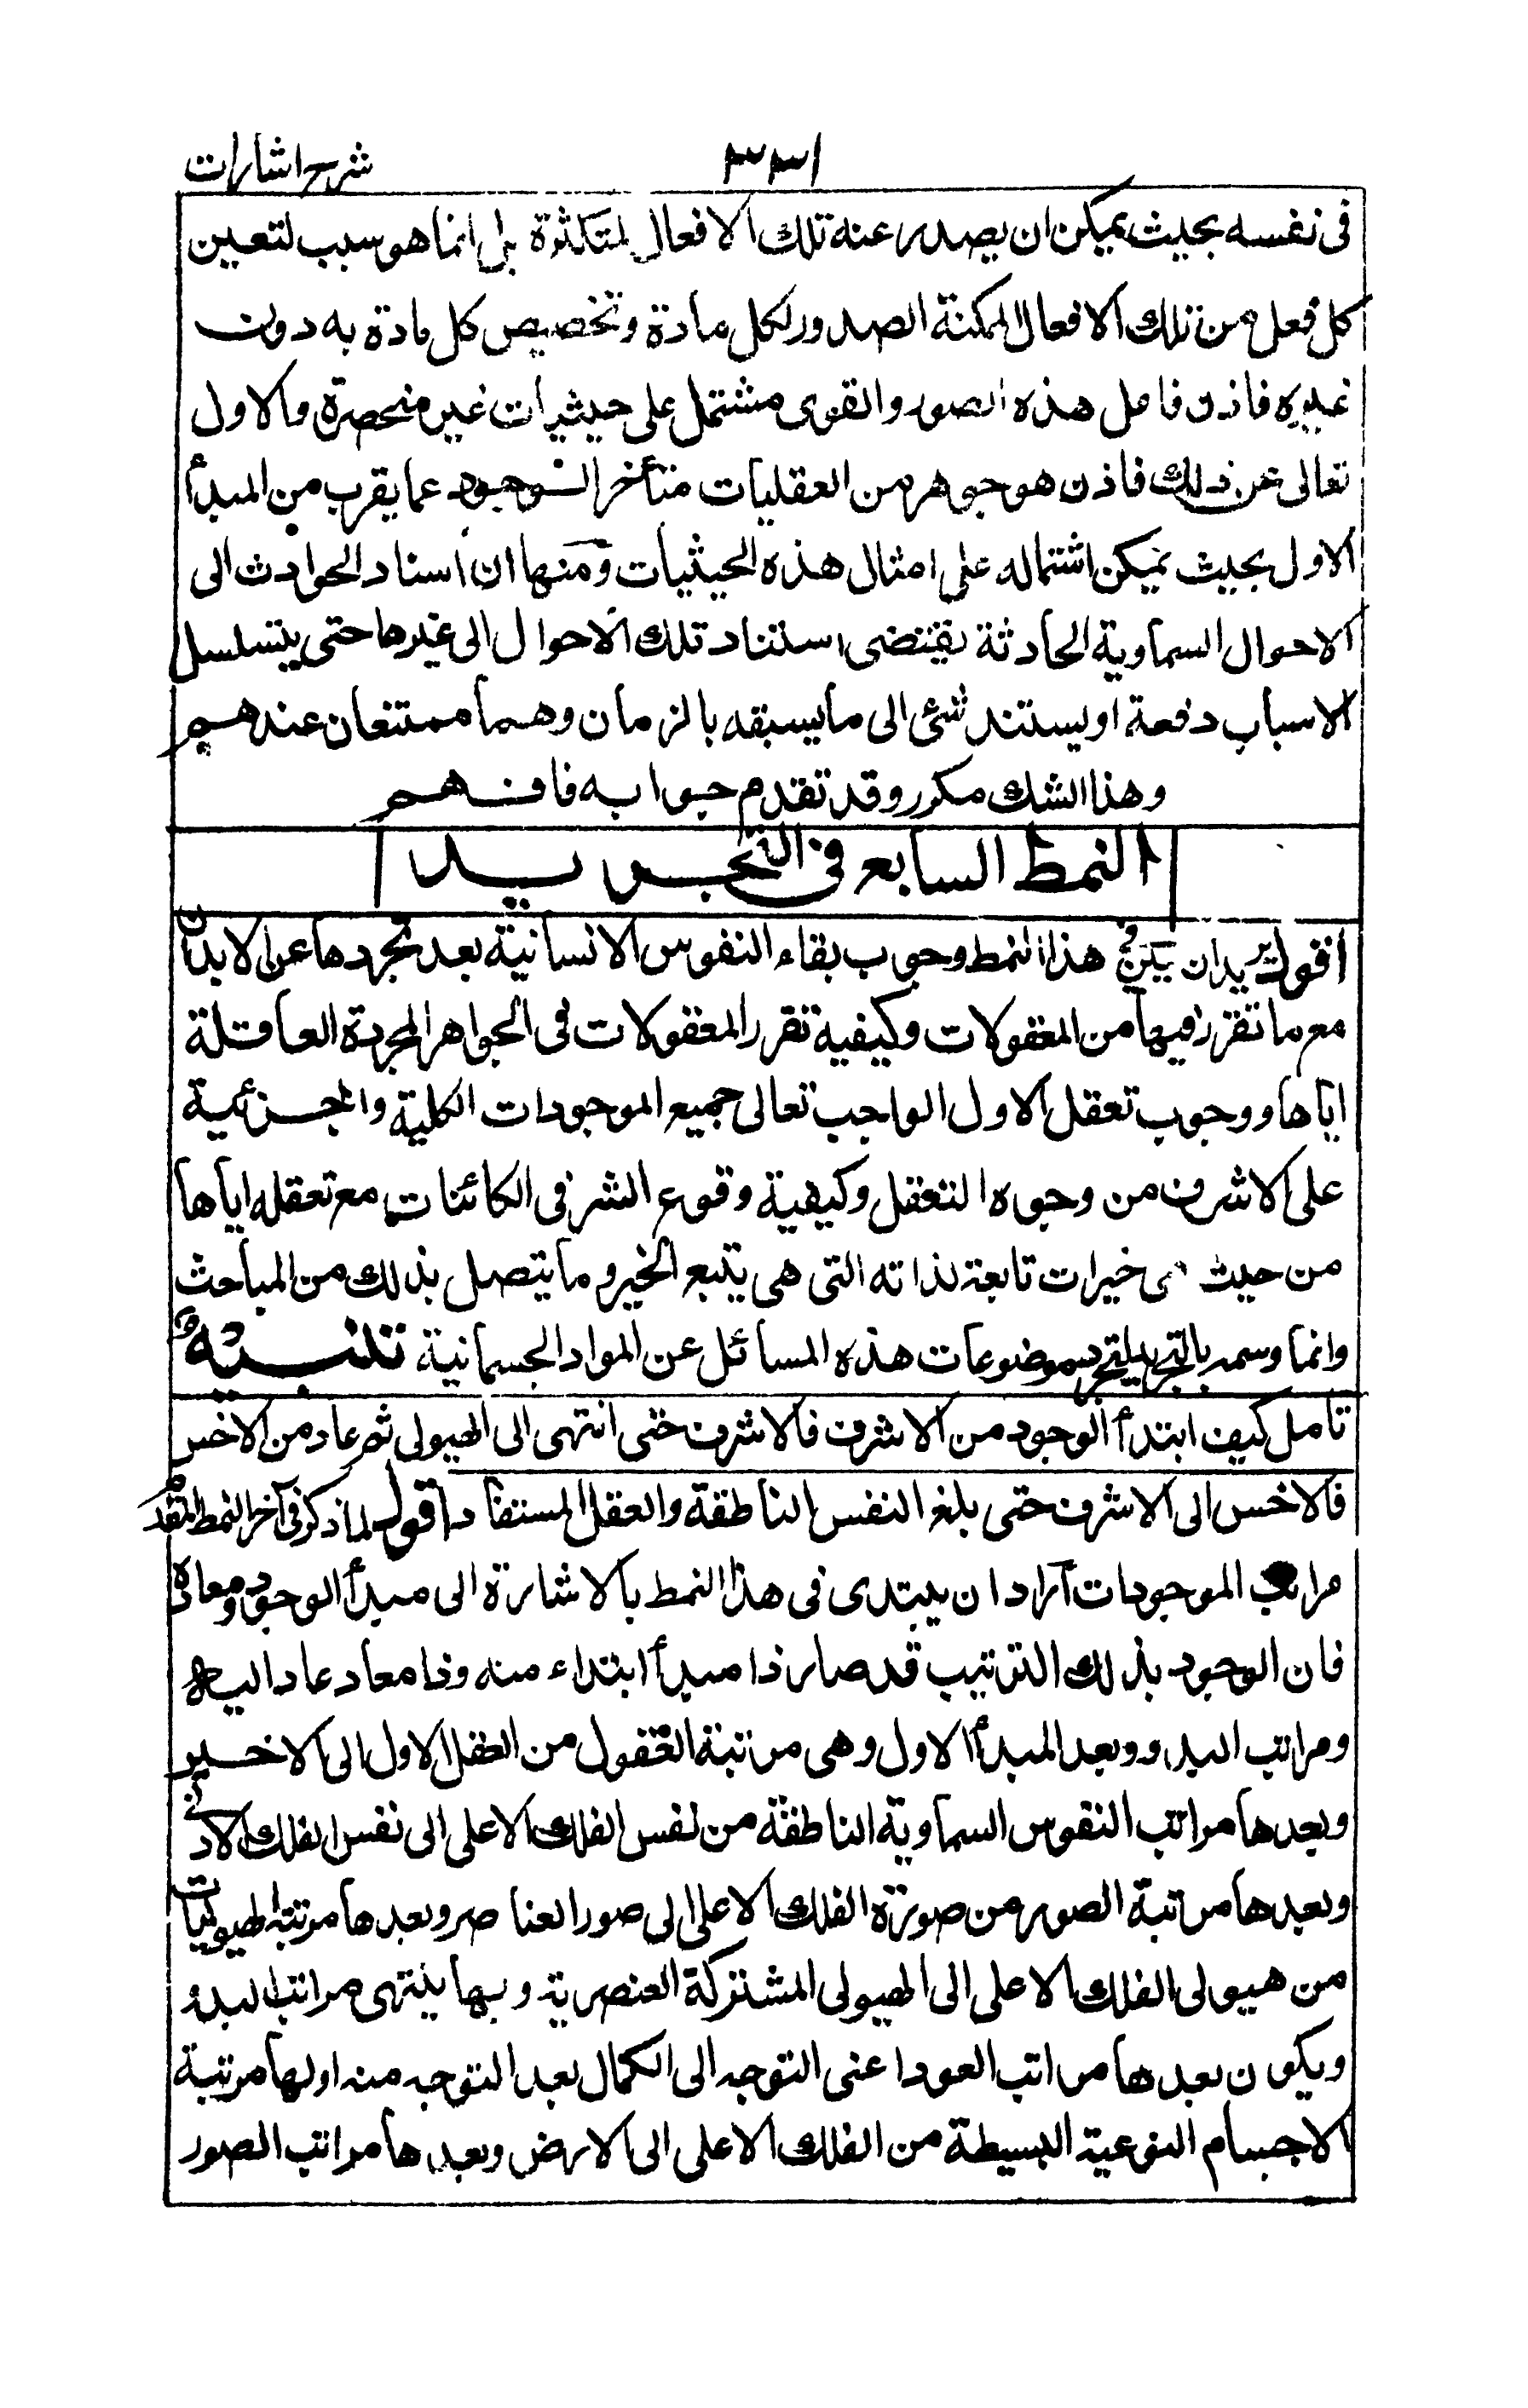 شرح اشارات
١٣٣
فى نفسه بحيث يمكن ان يصدر عنه تلك الافعال المتكثرة بل انما هو سبب لتعين
كل فعل من تلك الافعال الممكنة الصدور لكل مادة وتخصيص كل مادة به دون
غيره فاذن فاعل هذه الصور والقوى مشتمل على حيثيات غير منحصرة والاول
تعالى عن ذلك فاذن هو جوهر من العقليات متأخر الوجود عما يقرب من المبدأ
الاول بحيث يمكن اشتماله على امثال هذه الحيثيات ومنها ان اسناد الحوادث الى
الاحوال السماوية الحادثة يقتضى استناد تلك الاحوال الى غيرها حتى يتسلسل
الاسباب دفعة او يستند شئ الى ما يسبقه بالزمان وهما ممتنعان عندهم
وهذا الشك مكرر وقد تقدم جوابه فافهم
النمط السابع فى التجريد
اقول يريد ان يبين فى هذا النمط وجوب بقاء النفوس الانسانية بعد تجردها عن الابدان
مع ما تقرر فيها من المعقولات وكيفية تقرر المعقولات فى الجواهر المجردة العاقلة
اياها ووجوب تعقل الاول الواجب تعالى جميع الموجودات الكلية والجزئية
على الاشرف من وجوه التعقل وكيفية وقوع الشر فى الكائنات مع تعقله اياها
من حيث هى خيرات تابعة لذاته التى هى يتبع الخير وما يتصل بذلك من المباحث
وانما وسمه بالتجريد لتجرد موضوعات هذه المسائل عن المواد الجسمانية تنبيه
تامل كيف ابتدأ الوجود من الاشرف فالاشرف حتى انتهى الى الهيولى ثم عاد من الاخس
فالاخس الى الاشرف حتى بلغ النفس الناطقة والعقل المستفاد اقول لما ذكر فى آخر النمط المتقدم
مراتب الموجودات آراد ان يبتدى فى هذا النمط بالاشارة الى مبدأ الوجود ومعاده
فان الوجود بذلك الترتيب قد صار ذا مبدأ ابتداء منه وذا معاد عاد اليه
ومراتب البدو وبعد المبدأ الاول وهى مرتبة العقول من العقل الاول الى الاخير
وبعدها مراتب النفوس السماوية الناطقة من نفس الفلك الاعلى الى نفس الفلك الادنى
وبعدها مرتبة الصور من صورة الفلك الاعلى الى صور العناصر وبعدها مرتبة الهيوليات
من هيولى الفلك الاعلى الى الهيولى المشتركة العنصرية وبها ينتهى مراتب البدو
ويكون بعدها مراتب العود اعنى التوجه الى الكمال بعد التوجه منه اولها مرتبة
الاجسام النوعية البسيطة من الفلك الاعلى الى الارض وبعدها مراتب الصور